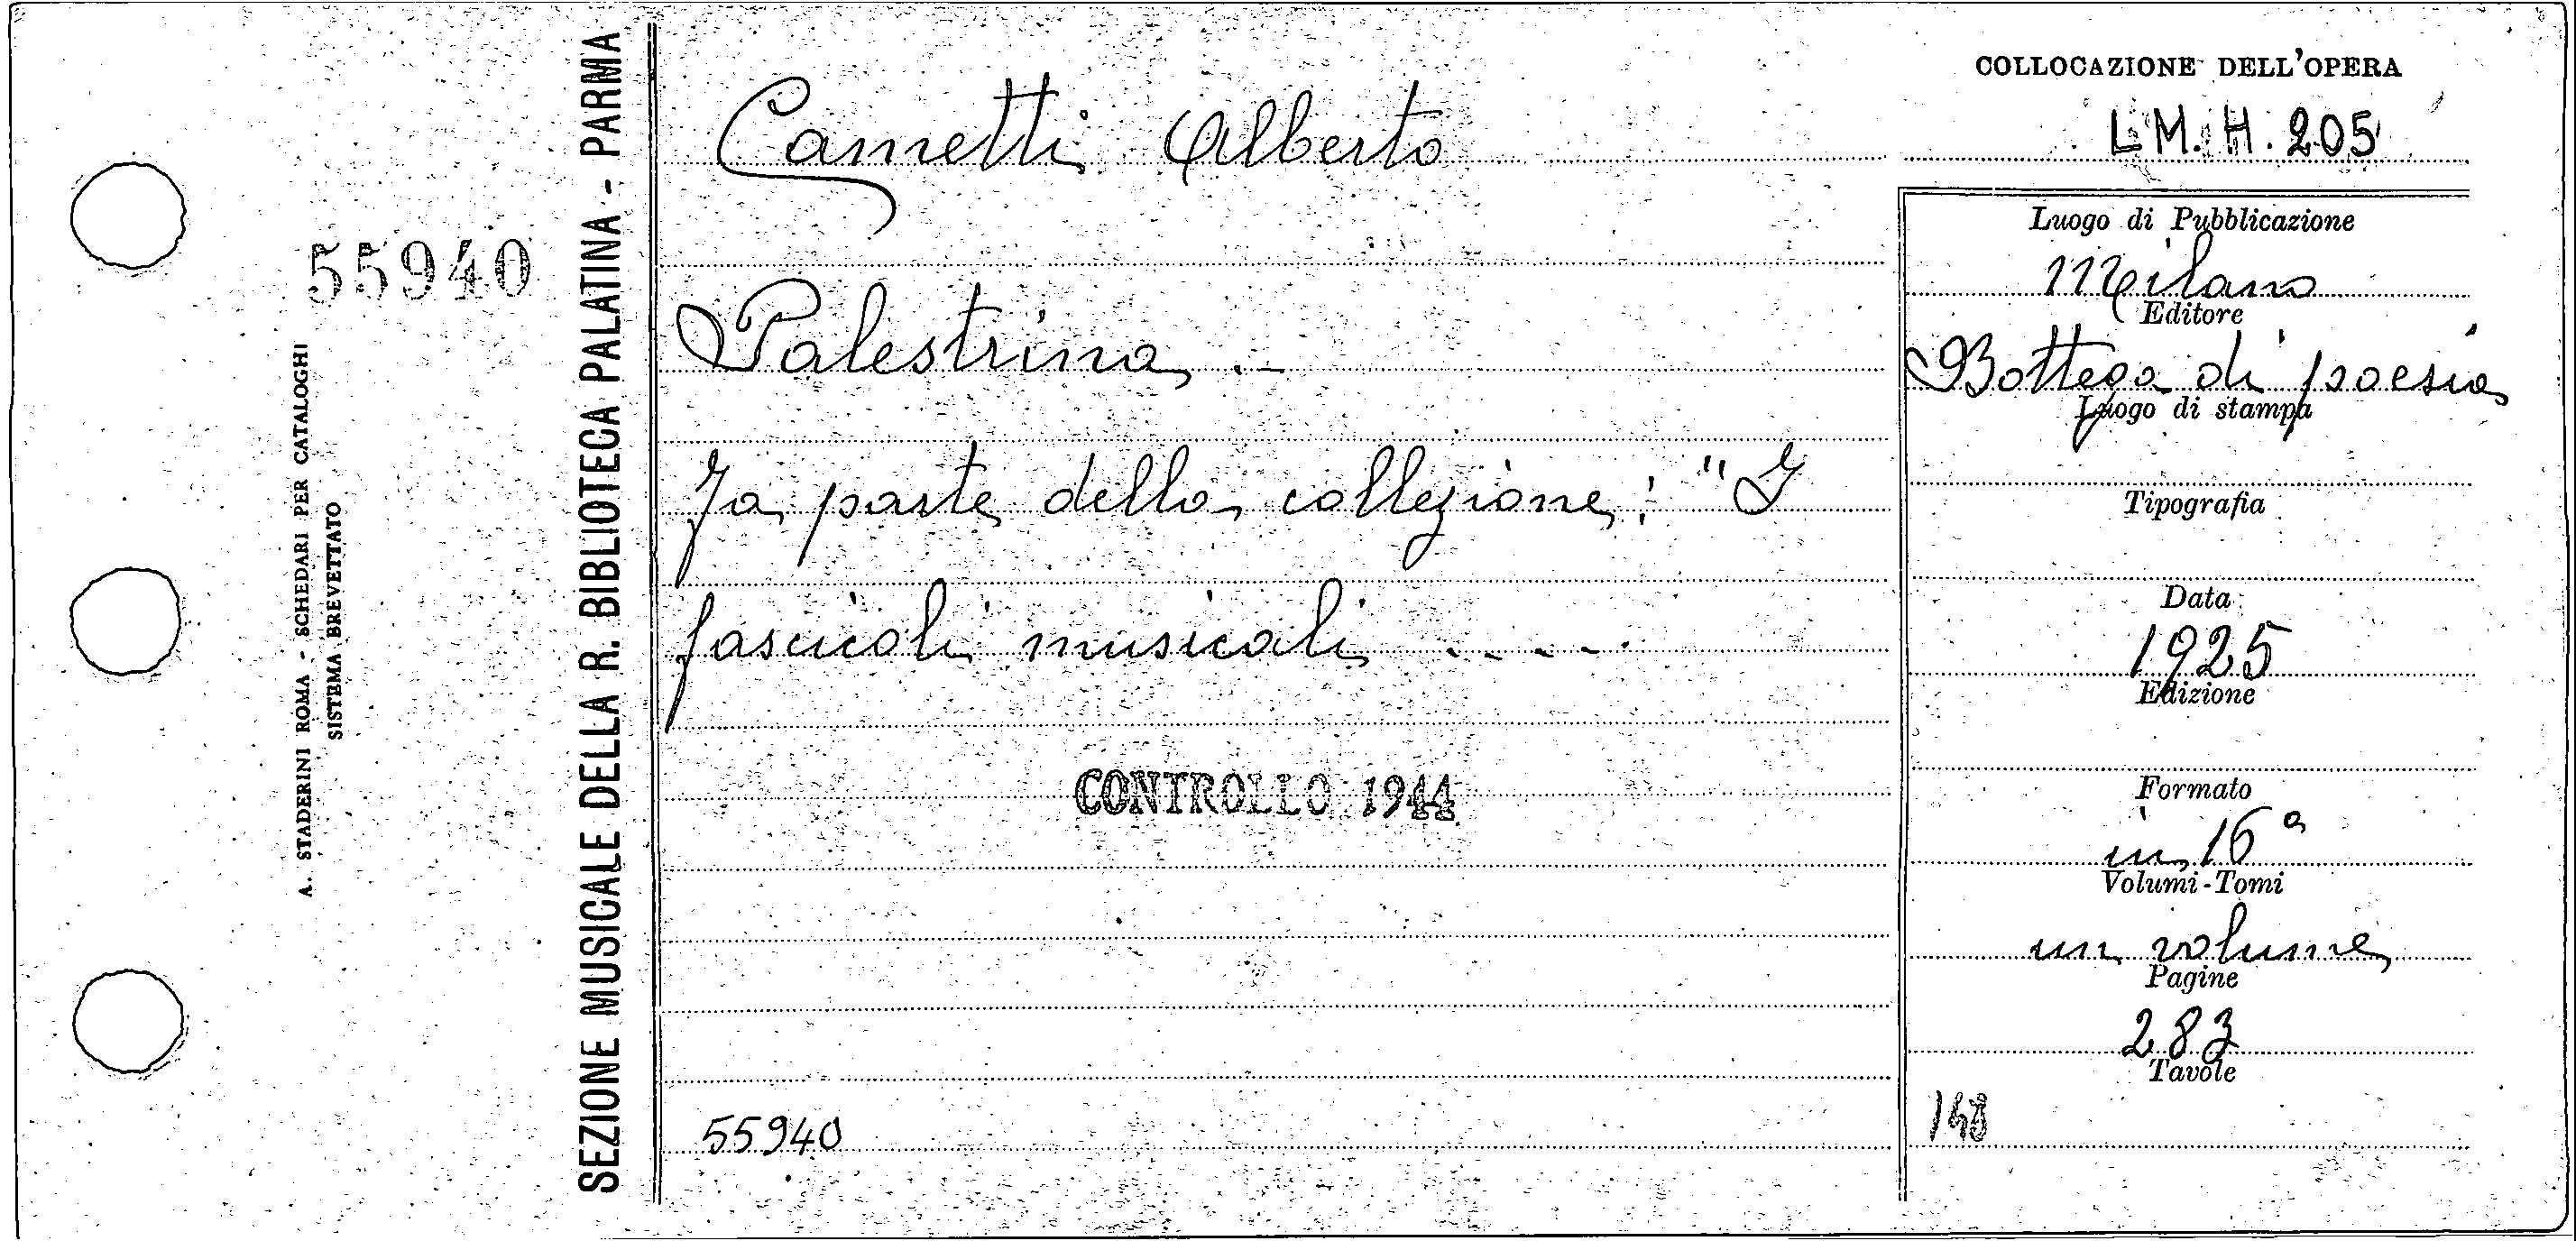 55940
A. STADERINI ROMA - SCHEDARI PER CATALOGHI
SISTEMA BREVETTATO
SEZIONE MUSICALE DELLA R. BIBLIOTECA PALATINA - PARMA
Cametti Alberto
Palestrina. -
Fa parte della collezione: "I
fascicoli musicali - - - -
CONTROLLO 1944
55940
COLLOCAZIONE DELL'OPERA
L.M. H. 205
Luogo di Pubblicazione
Milano
Editore
Bottega di poesia
Luogo di stampa
Tipografia
Data
1925
Edizione
Formato
in 16°
Volumi-Tomi
un volume
Pagine
283
Tavole